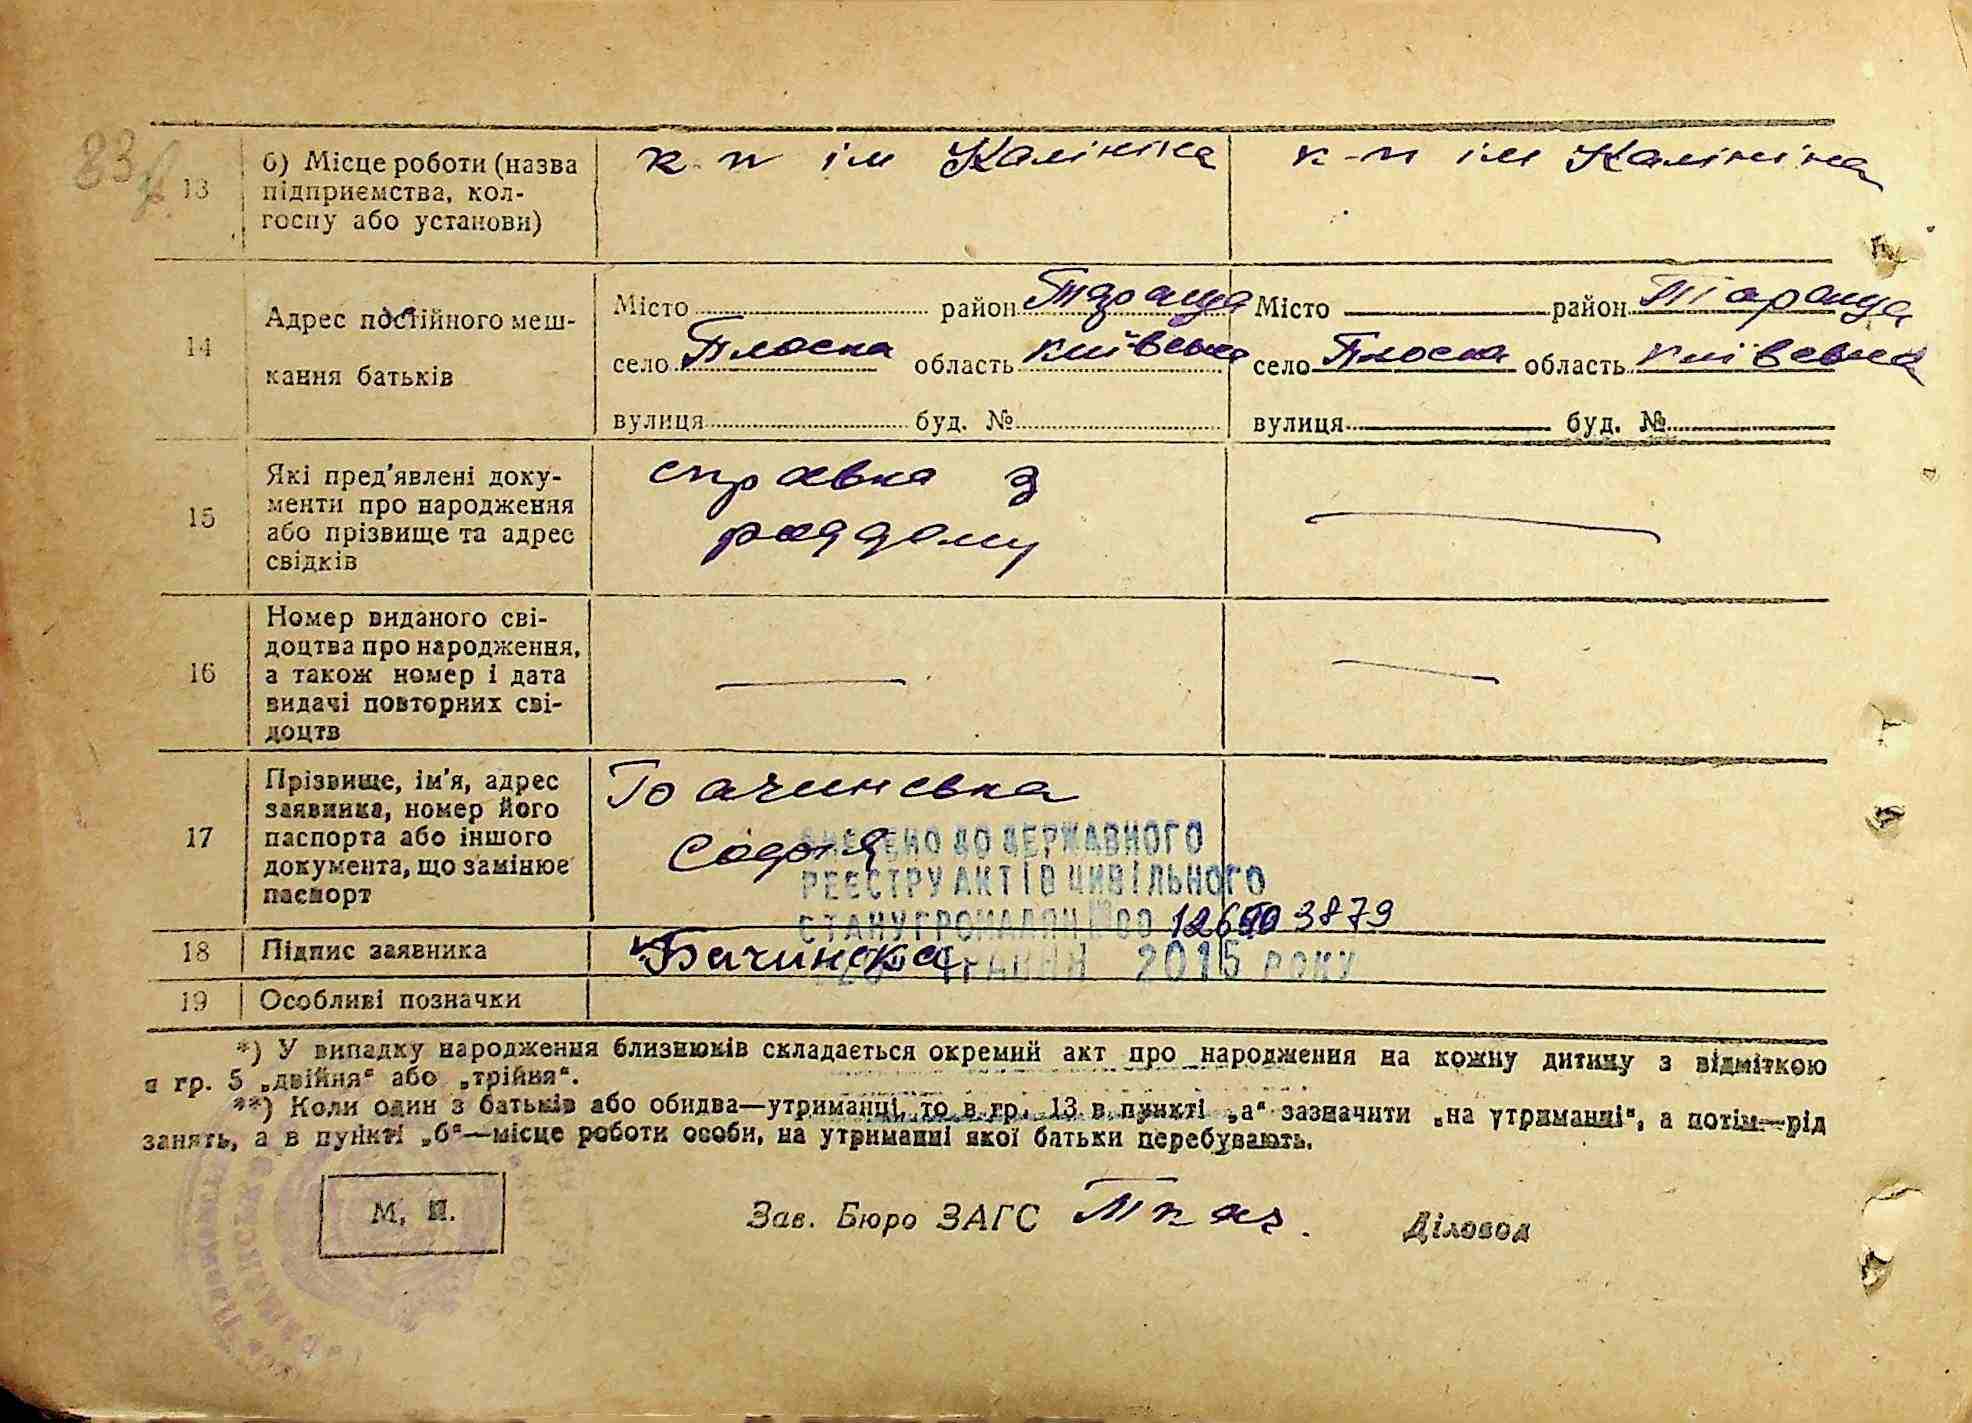 83
13 б) Місце роботи (назва підприємства, кол-
госпу або установи)
к-п ім Калініна
к-п ім Калініна
14 Адрес постійного меш-
кання батьків
Місто район Тараща
село Плоска область Київська
вулиця буд. №
Місто район Тараща
село Плоска область Київська
вулиця буд. №
15 Які пред'явлені доку-
менти про народження
або прізвище та адрес
свідків
справка з
роддому
16 Номер виданого сві-
доцтва про народження,
а також номер і дата
видачі повторних сві-
доцтв
17 Прізвище, ім'я, адрес
заявника, номер його
паспорта або іншого
документа, що замінює
паспорт
Бачинська
Софія
ВНЕСЕНО ДО ДЕРЖАВНОГО
РЕЄСТРУ АКТІВ ЦИВІЛЬНОГО
СТАНУ ГРОМАДЯН
3879
ТРАВНЯ 2015 РОКУ
18 Підпис заявника
Бачинска
19 Особливі позначки
*) У випадку народження близнюків складається окремий акт про народження на кожну дитину з відміткою
в гр. 5 „двійня“ або „трійня“.
**) Коли один з батьків або обидва—утриманці, то в гр. 13 в пункті „а“ зазначити „на утриманні“, а потім—рід
занять, а в пункті „б“—місце роботи особи, на утриманні якої батьки перебувають.
М. П.
Зав. Бюро ЗАГС Ткач.
Діловод